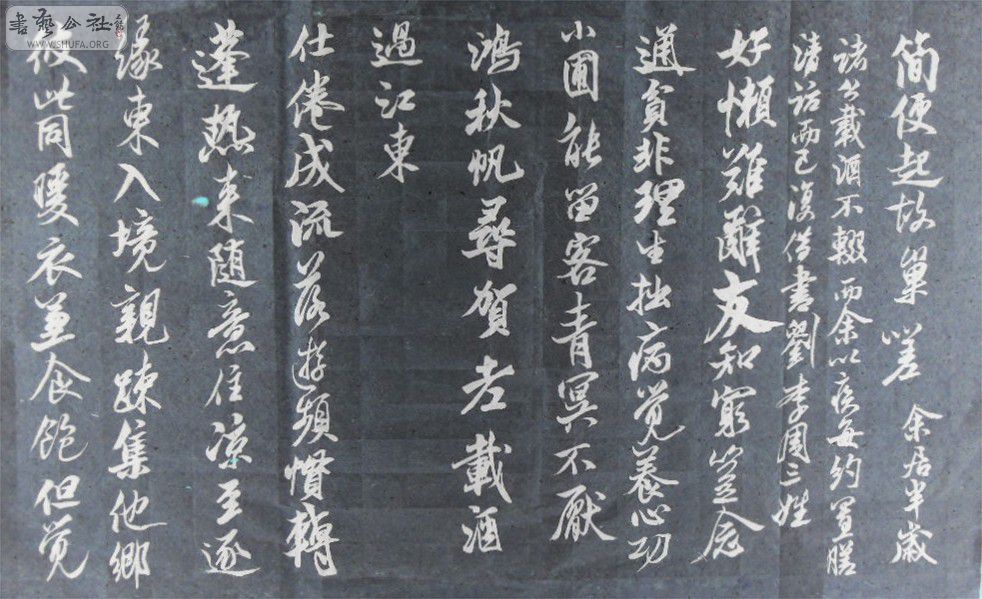 書藝公社
WWW.SHUFA.ORG
簡便起故巢嗟 余居半歲
諸公載酒不輟而余以疾每約置膳
清話而已復借書劉李周三姓
好懶難辭友知窮豈念
通貧非理生拙病覺養心功
小圃能留客青冥不厭
鴻秋帆尋賀老載酒
過江東
仕倦成流落遊頻慣轉
蓬熱来随意住凉至逐
縁東入境親踈集他鄉
彼此同暖衣兼食飽但覺